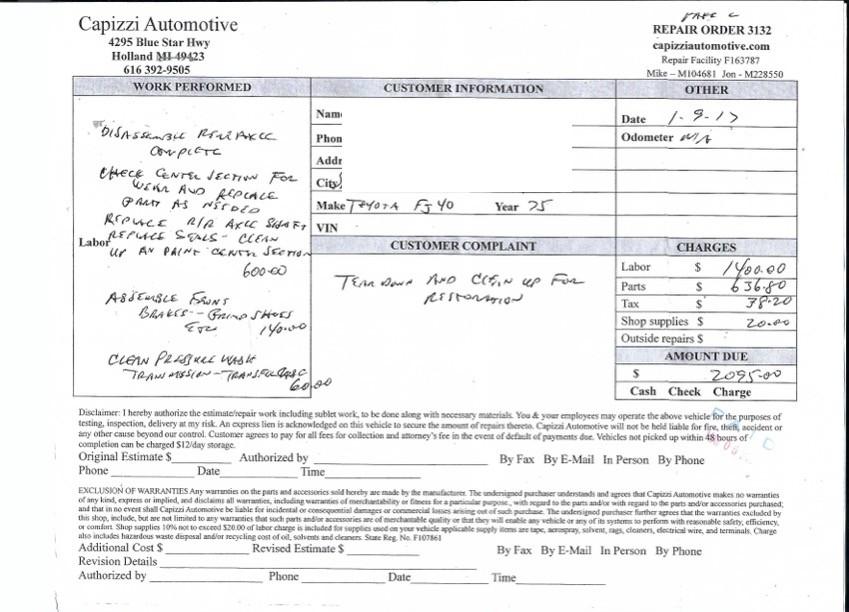 Capizzi Automotive
4295 Blue Star Hwy
Holland MI 49423
616 392-9505
REPAIR ORDER 3132
capizziautomotive.com
Repair Facility F163787
Mike – M104681 Jon - M228550
WORK PERFORMED
DISASSEMBLE REAR AXLE
COMPLETE
CHECK CENTER SECTION FOR
WEAR AND REPLACE
PART AS NEEDED
REPLACE R/R AXLE SHAFT
REPLACE SEALS - CLEAN
Labor
UP AN PAINT CENTER SECTION
600.00
ASSEMBLE FRONT
BRAKES - GRIND SHOES
ETC 140.00
CLEAN PRESSURE WASH
TRANSMISSION - TRANSFER CASE
60.00
CUSTOMER INFORMATION
Name
Phon
Addr
City
Make TOYOTA FJ40 Year 75
VIN
CUSTOMER COMPLAINT
TEAR DOWN AND CLEAN UP FOR
RESTORATION
OTHER
Date 1-9-17
Odometer N/A
CHARGES
Labor $ 1400.00
Parts $ 636.80
Tax $ 38.20
Shop supplies $ 20.00
Outside repairs $
AMOUNT DUE
$ 2095.00
Cash Check Charge
Disclaimer: I hereby authorize the estimate/repair work including sublet work, to be done along with necessary materials. You & your employees may operate the above vehicle for the purposes of
testing, inspection, delivery at my risk. An express lien is acknowledged on this vehicle to secure the amount of repairs thereto. Capizzi Automotive will not be held liable for fire, theft, accident or
any other cause beyond our control. Customer agrees to pay for all fees for collection and attorney's fee in the event of default of payments due. Vehicles not picked up within 48 hours of
completion can be charged $12/day storage.
Original Estimate $ Authorized by By Fax By E-Mail In Person By Phone
Phone Date Time
EXCLUSION OF WARRANTIES Any warranties on the parts and accessories sold hereby are made by the manufacturer. The undersigned purchaser understands and agrees that Capizzi Automotive makes no warranties
of any kind, express or implied, and disclaims all warranties, including warranties of merchantability or fitness for a particular purpose, with regard to the parts and/or with regard to the parts and/or accessories purchased;
and that in no event shall Capizzi Automotive be liable for incidental or consequential damages or commercial losses arising out of such purchase. The undersigned purchaser further agrees that the warranties excluded by
this shop, include, but are not limited to any warranties that such parts and/or accessories are of merchantable quality or that they will enable any vehicle or any of its systems to perform with reasonable safety, efficiency,
or comfort. Shop supplies 10% not to exceed $20.00 of labor charge is included for supplies used on your vehicle applicable supply items are tape, aerospray, solvent, rags, cleaners, electrical wire, and terminals. Charge
also includes hazardous waste disposal and/or recycling cost of oil, solvents and cleaners. State Reg. No. F107861
Additional Cost $ Revised Estimate $ By Fax By E-Mail In Person By Phone
Revision Details
Authorized by Phone Date Time